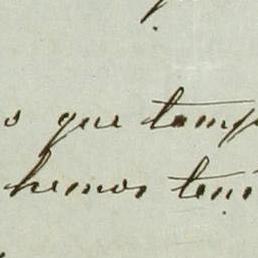 o que temp
hemos teni